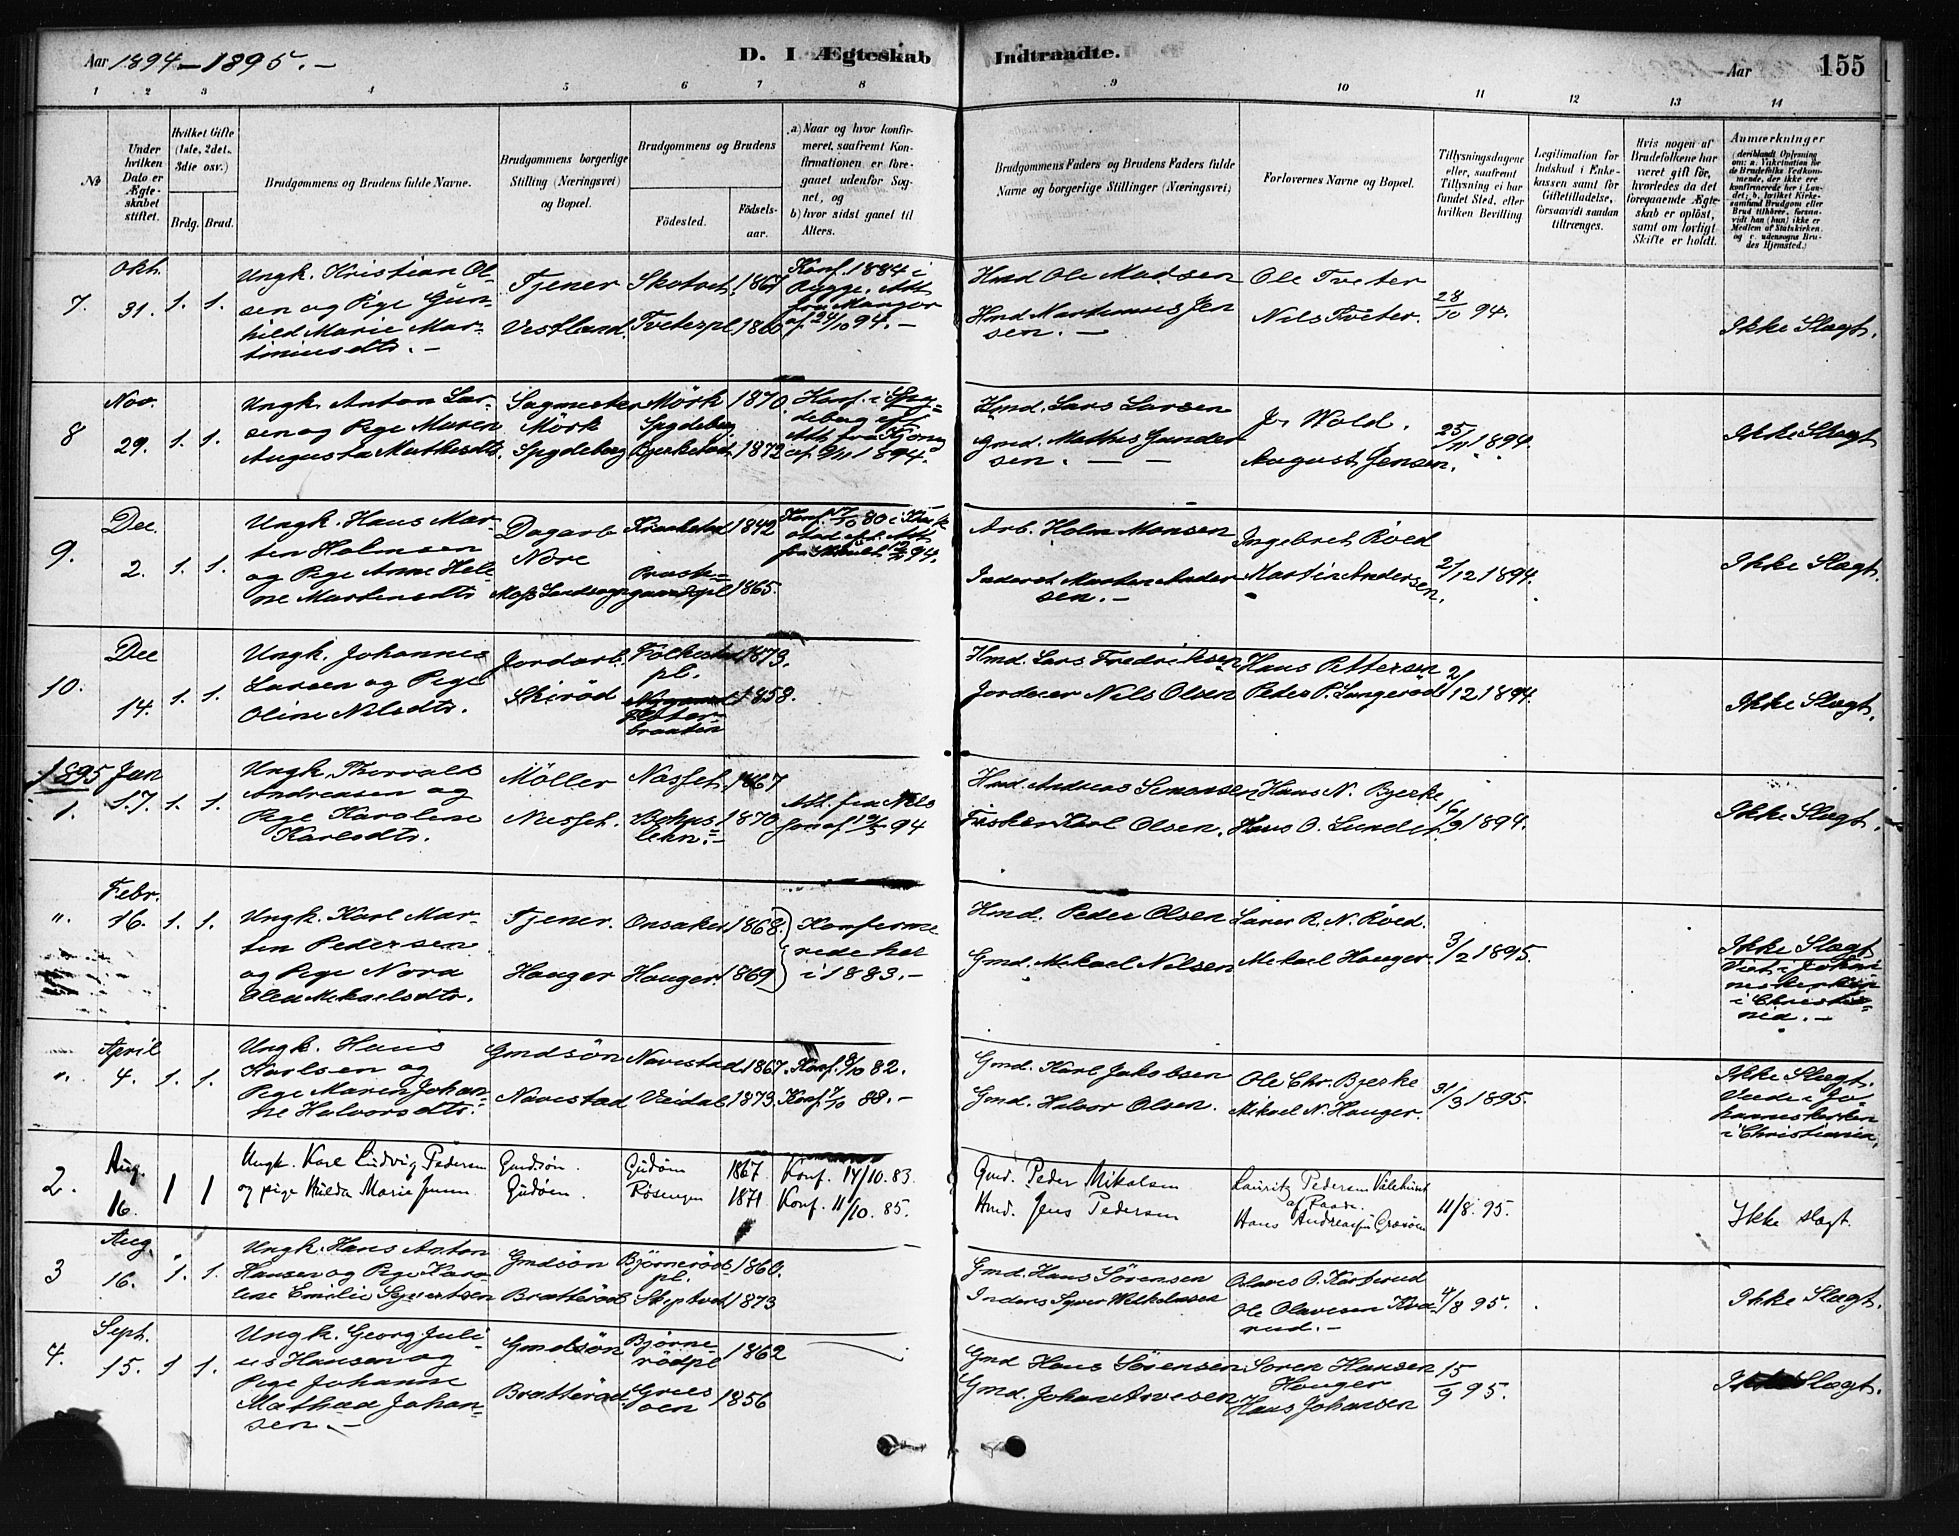 Aar 1894-1895.-
D. I Ægteskab Indtraadte.
Aar 155
1 2 3 4 5 6 7 8 9 10 11 12 13 14
№
Under hvilken Dato er Ægteskabet stiftet.
Hvilket Gifte (1ste, 2det, 3die osv.)
Brdg. Brud.
Brudgommens og Brudens fulde Navne.
Brudgommens borgerlige Stilling (Næringsvei) og Bopæl.
Brudgommens og Brudens
Fødested. Fødselsaar.
a) Naar og hvor konfirmeret, saafremt Konfirmationen er foregaaet udenfor Sognet, og
b) hvor sidst gaaet til Alters.
Brudgommens Faders og Brudens Faders fulde Navne og borgerlige Stillinger (Næringsvei)
Forlovernes Navne og Bopæl.
Tillysningsdagene eller, saafremt Tillysning ei har fundet Sted, efter hvilken Bevilling.
Legitimation for Indskud i Enkekassen samt for Giftetilladelse, forsaavidt saadan tiltrænges.
Hvis nogen af Brudefolkene har været gift før, hvorledes da det foregaaende Ægteskab er opløst, samt om lovligt Skifte er holdt.
Anmærkninger
7. Okt. 31. 1. 1.
Ungk. Kristian Ol-
sen og Pige Gun
hild Marie Mar-
tiniusdtr. -
Tjener
Vestland.
Skotvet. 1867
Tvetespl. 1860
Konf. 1884 i
Rygge. Att
fra Mangor
af 24/10 94. -
Hmd Ole Madsen
Hmd Martinius Jen
sen. -
Ole Tveter
Nils Tveter.
28/10 94.
Ikke Slægt.
8 Nov. 29. 1. 1.
Ungk. Anton Lar-
sen og Pige Maren
Augusta Mathesdtr.
Sagmester
Mörk
Spydeberg
Mörk 1870.
Spydeberg
1872
Konf. i Spy-
deberg
Att. fra
1894.
Hmd. Lars Larsen
Gmd. Mathis Gunder
sen. - -
J. Wold.
August Jensen.
25/11 1894.
Ikke Slægt
9. Dec. 2. 1. 1.
Ungk. Hans Mar-
tin Holmsen
og Pige Anne Hel-
ne Martinsdtr
Dagarb
Nore
Moss Landsogn
1842
Præste-
gaardspl 1865.
Arb. Holm Monsen
Martin Ander
sen. -
Ingebret Röed
Martin Andersen.
2/12 1894.
Ikke Slægt.
10. Dec 14. 1. 1.
Ungk. Johannes
Larsen og Pige
Oline Nilsdtr.
Jordarb.
Skiröd
Folkestad 1873.
pl.
1858.
Hmd. Lars Fredriksen
Jordeier Nils Olsen
Hans Pettersen
Peder P. Lungeröd
2/12 1894.
Ikke Slægt.
1895 Jan
1. 17. 1. 1.
Ungk. Thorvald
Andreasen og
Pige Karoline
Karlsdtr.
Möller
Nesset.
Næsset. 1867
Bohus 1870
lehn. -
Att. fra
94
Hmd. Andreas Simonsen
Fisker Karl Olsen.
Hans N. Bjerke
Hans O. Lundet.
16/9 1894.
Ikke Slægt.
" Febr. 16. 1. 1.
Ungk. Karl Mar-
tin Pedersen
og Pige Nora
Olea Mikaelsdtr.
Tjener.
Hauger
Onsaker 1868.
Hauger. 1869
Konfirme
rede her
i 1883. -
Hmd. Peder Olsen
Gmd. Mikael Nilsen
Laver R. N. Röed.
Mikael Hauger.
3/2 1895.
Ikke Slægt
Viet i Johan
neskirken
i Christia-
nia. -
" April 4. 1. 1.
Ungk. Hans
Karlsen og
Pige Maren Johan
ne Halvorsdtr.
Gmdsön
Navestad
Navestad 1867.
Veidal 1873.
Konf. 8/10 82.
Konf. 7/10 88. -
Gmd. Karl Jakobsen
Gmd. Halvor Olsen.
Ole Chr. Bjerke
Mikael N. Hauger.
31/3 1895.
Ikke Slægt.
Viede i Jo
hanneskirken
i Christiania.
2. Aug. 16. 1 1
Ungk. Karl Ludvig Pedersen
og pige Hulda Marie Jensen
Gmdsøn.
Gudøen.
Gudøen 1867
Røsengen 1871
Konf. 14/10. 83.
Konf. 11/10. 85.
Gmd. Peder Mikalsen
Hmd. Jens Pedersen
Lauritz Pedersen
af Raade.
Hans Andreassen
11/8. 95.
Ikke slægt.
3 Aug. 16. 1. 1.
Ungk. Hans Anton
Hansen og Pige Karo-
line Emilie Syvertsen
Gmdsön
Bratteröd
Björneröds- 1860.
pl.
Skiptvet 1873
Gmd. Hans Sörensen
Inders Syver Wilhelmsen
Olaves O. Karterud
Ole Olavesen Kva
rud. -
4/8 95.
Ikke Slægt.
4. Sept. 15. 1 1.
Ungk. Georg Juli-
us Hansen og
Pige Johanne
Mathea Johan-
sen. -
Gmdsön
Bratteröd
Björne- 1862
rödpl
1856
Gmd Hans Sörensen
Gmd. Johan Arvesen
Soren Hansen
Hauger
Hans Johansen
15/9 95.
Ikke Slægt.